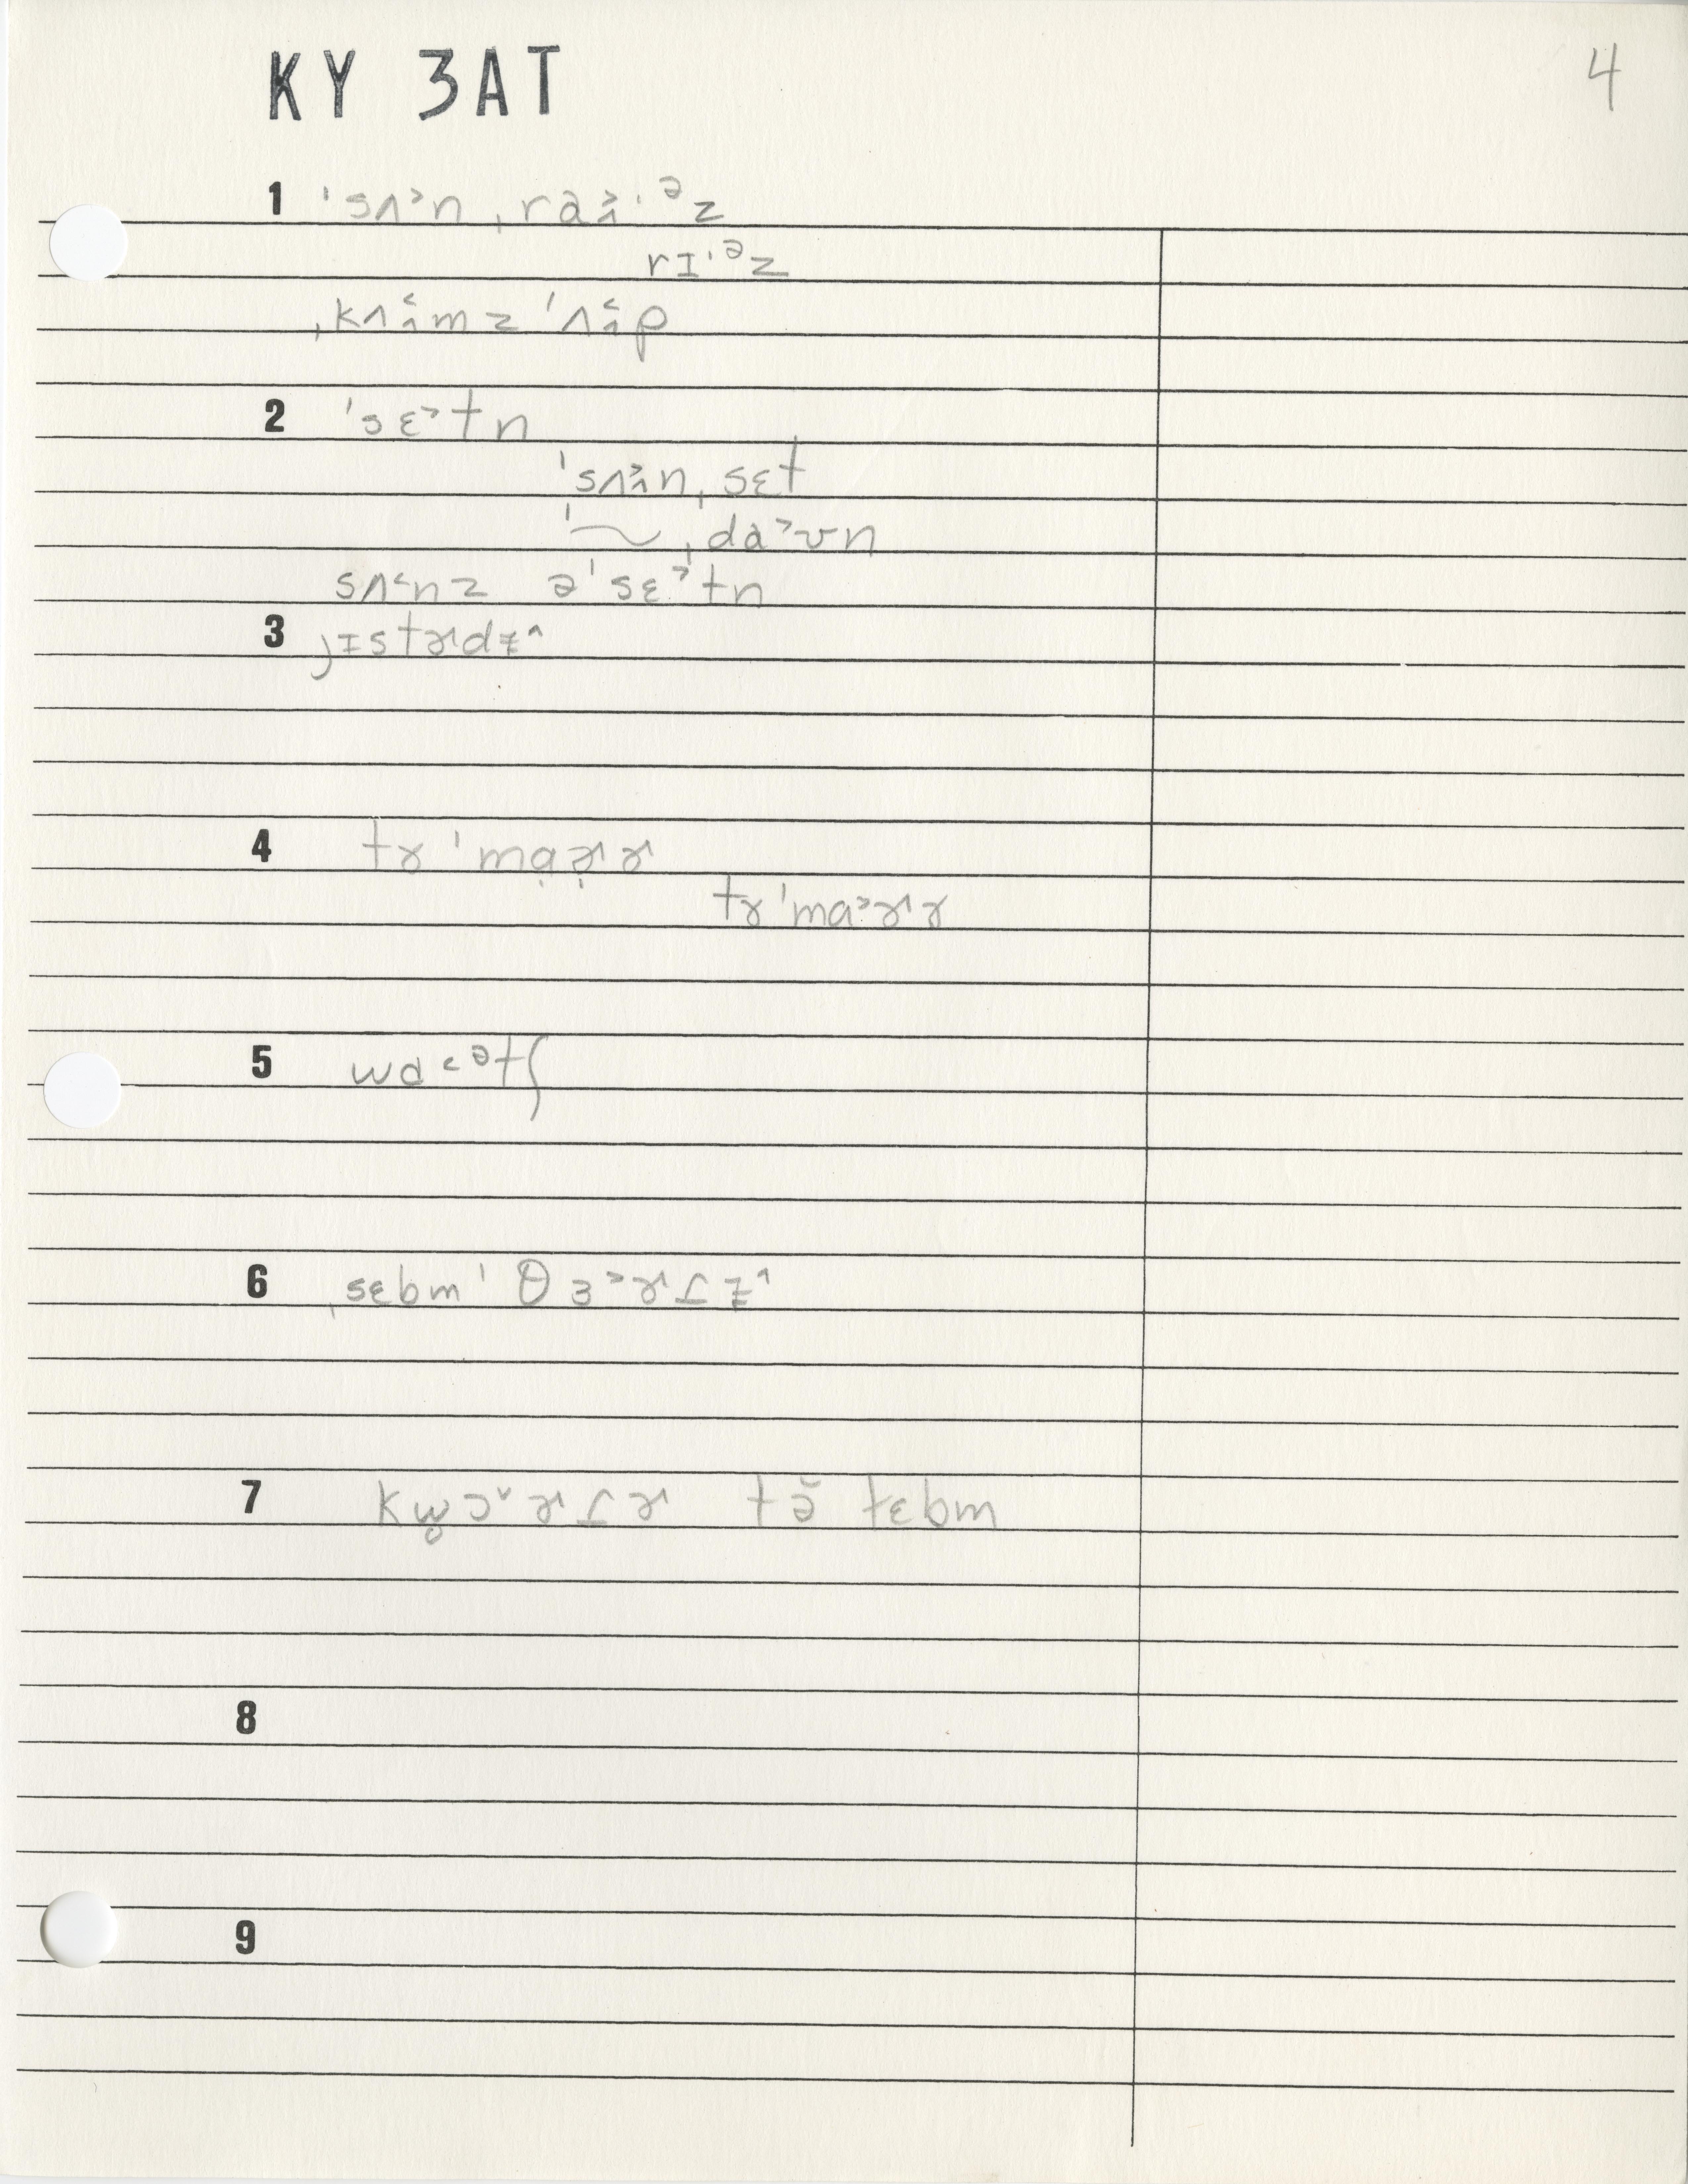 KY 3AT
4
1 ˈsʌ˃n ˌraɨ̭˃ˑᵊz
rɪˑᵊz
ˌkʌɨ̭˂mz ˈʌɨ̭˂p
2 ˈsɛ˃tn
ˈsʌɨ̭˃n ˌsɛt
ˈ~ ˌda˃ʊn
sʌ˂nz əˈsɛ˃tn
3 jɪstɚdɪ̵˄
4 tɤˈmɑ̣ɚ̣ɤ
tɤˈma˃ɚɤ
5 wɑ˂ᵊtʃ
6 ˌsɛbmˈθɜ˃ɚɾɪ̵˄
7 kw̥ɔ˅ɚɾɚ tə̆ tɛbm
8
9